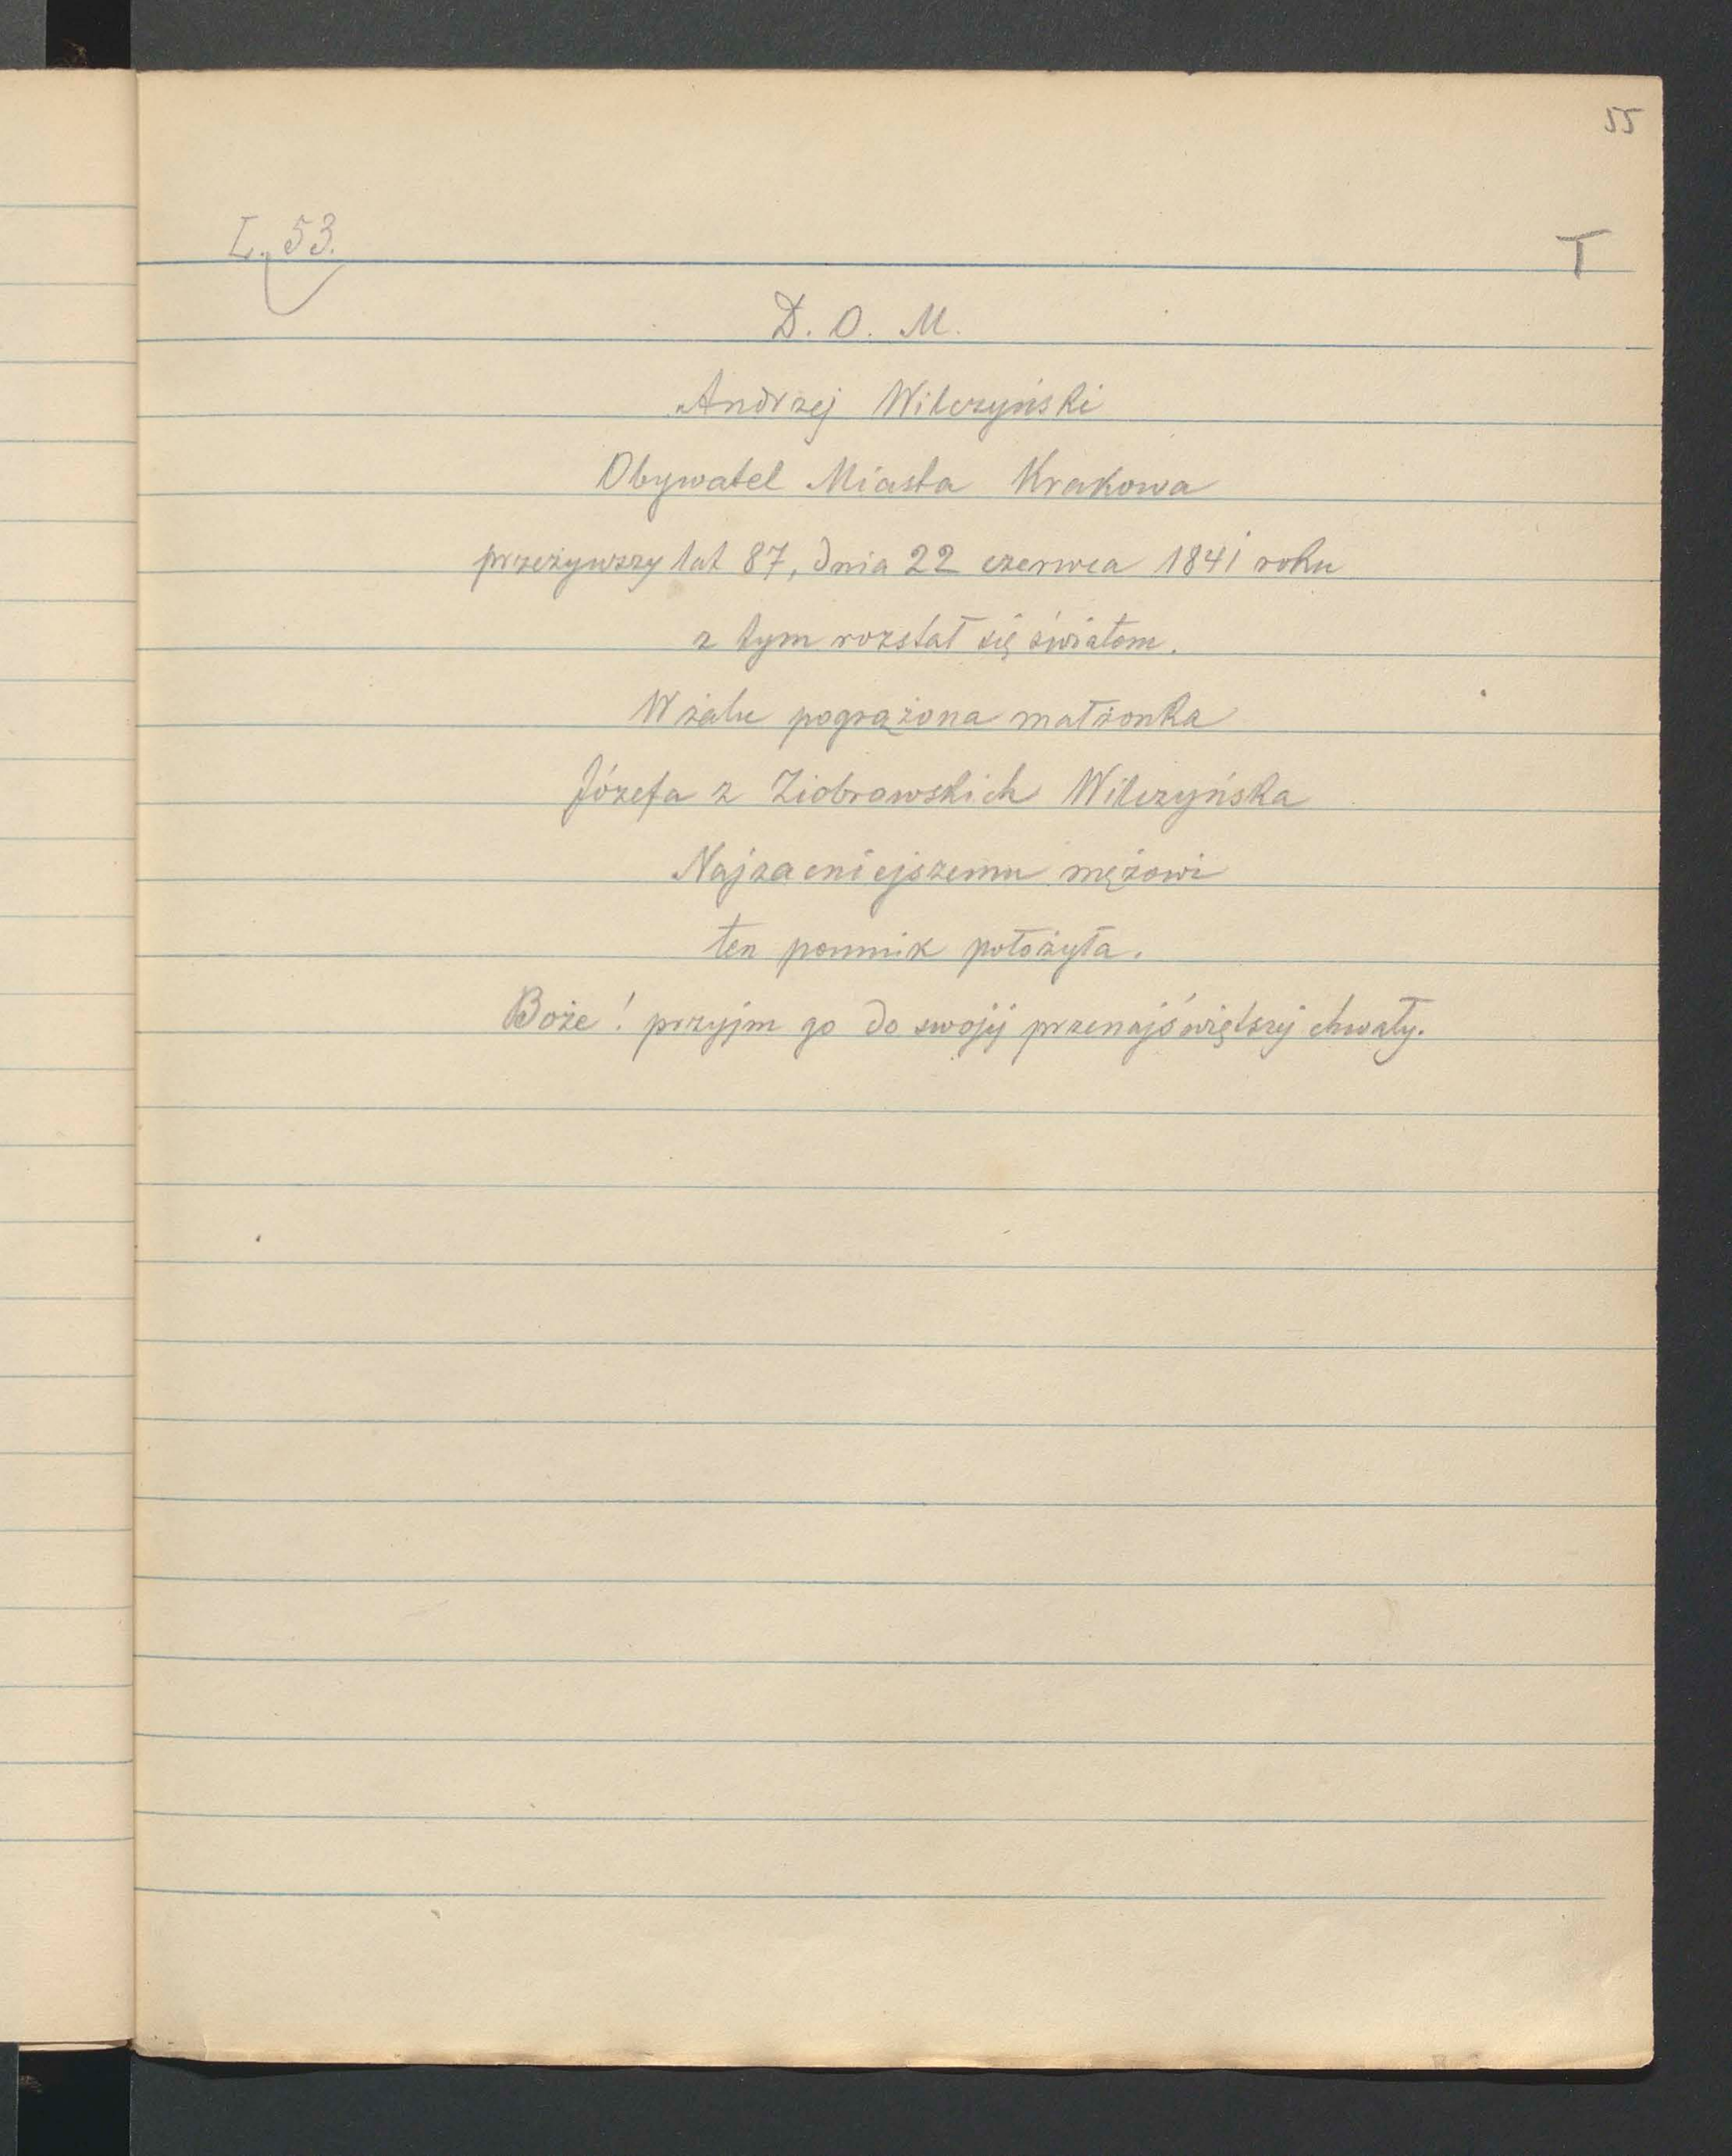 55
L. 53.
T
D. O. M.
Andrzej Wilczyński
Obywatel Miasta Krakowa
przeżywszy lat 87, dnia 22 czerwca 1841 roku
z tym rozstał się światem.
W żalu pogrążona małżonka
Józefa z Ziobrowskich Wilczyńska
Najzacniejszemu mężowi
ten pomnik położyła.
Boże! przyjm go do swojej przenajświętszej chwały.